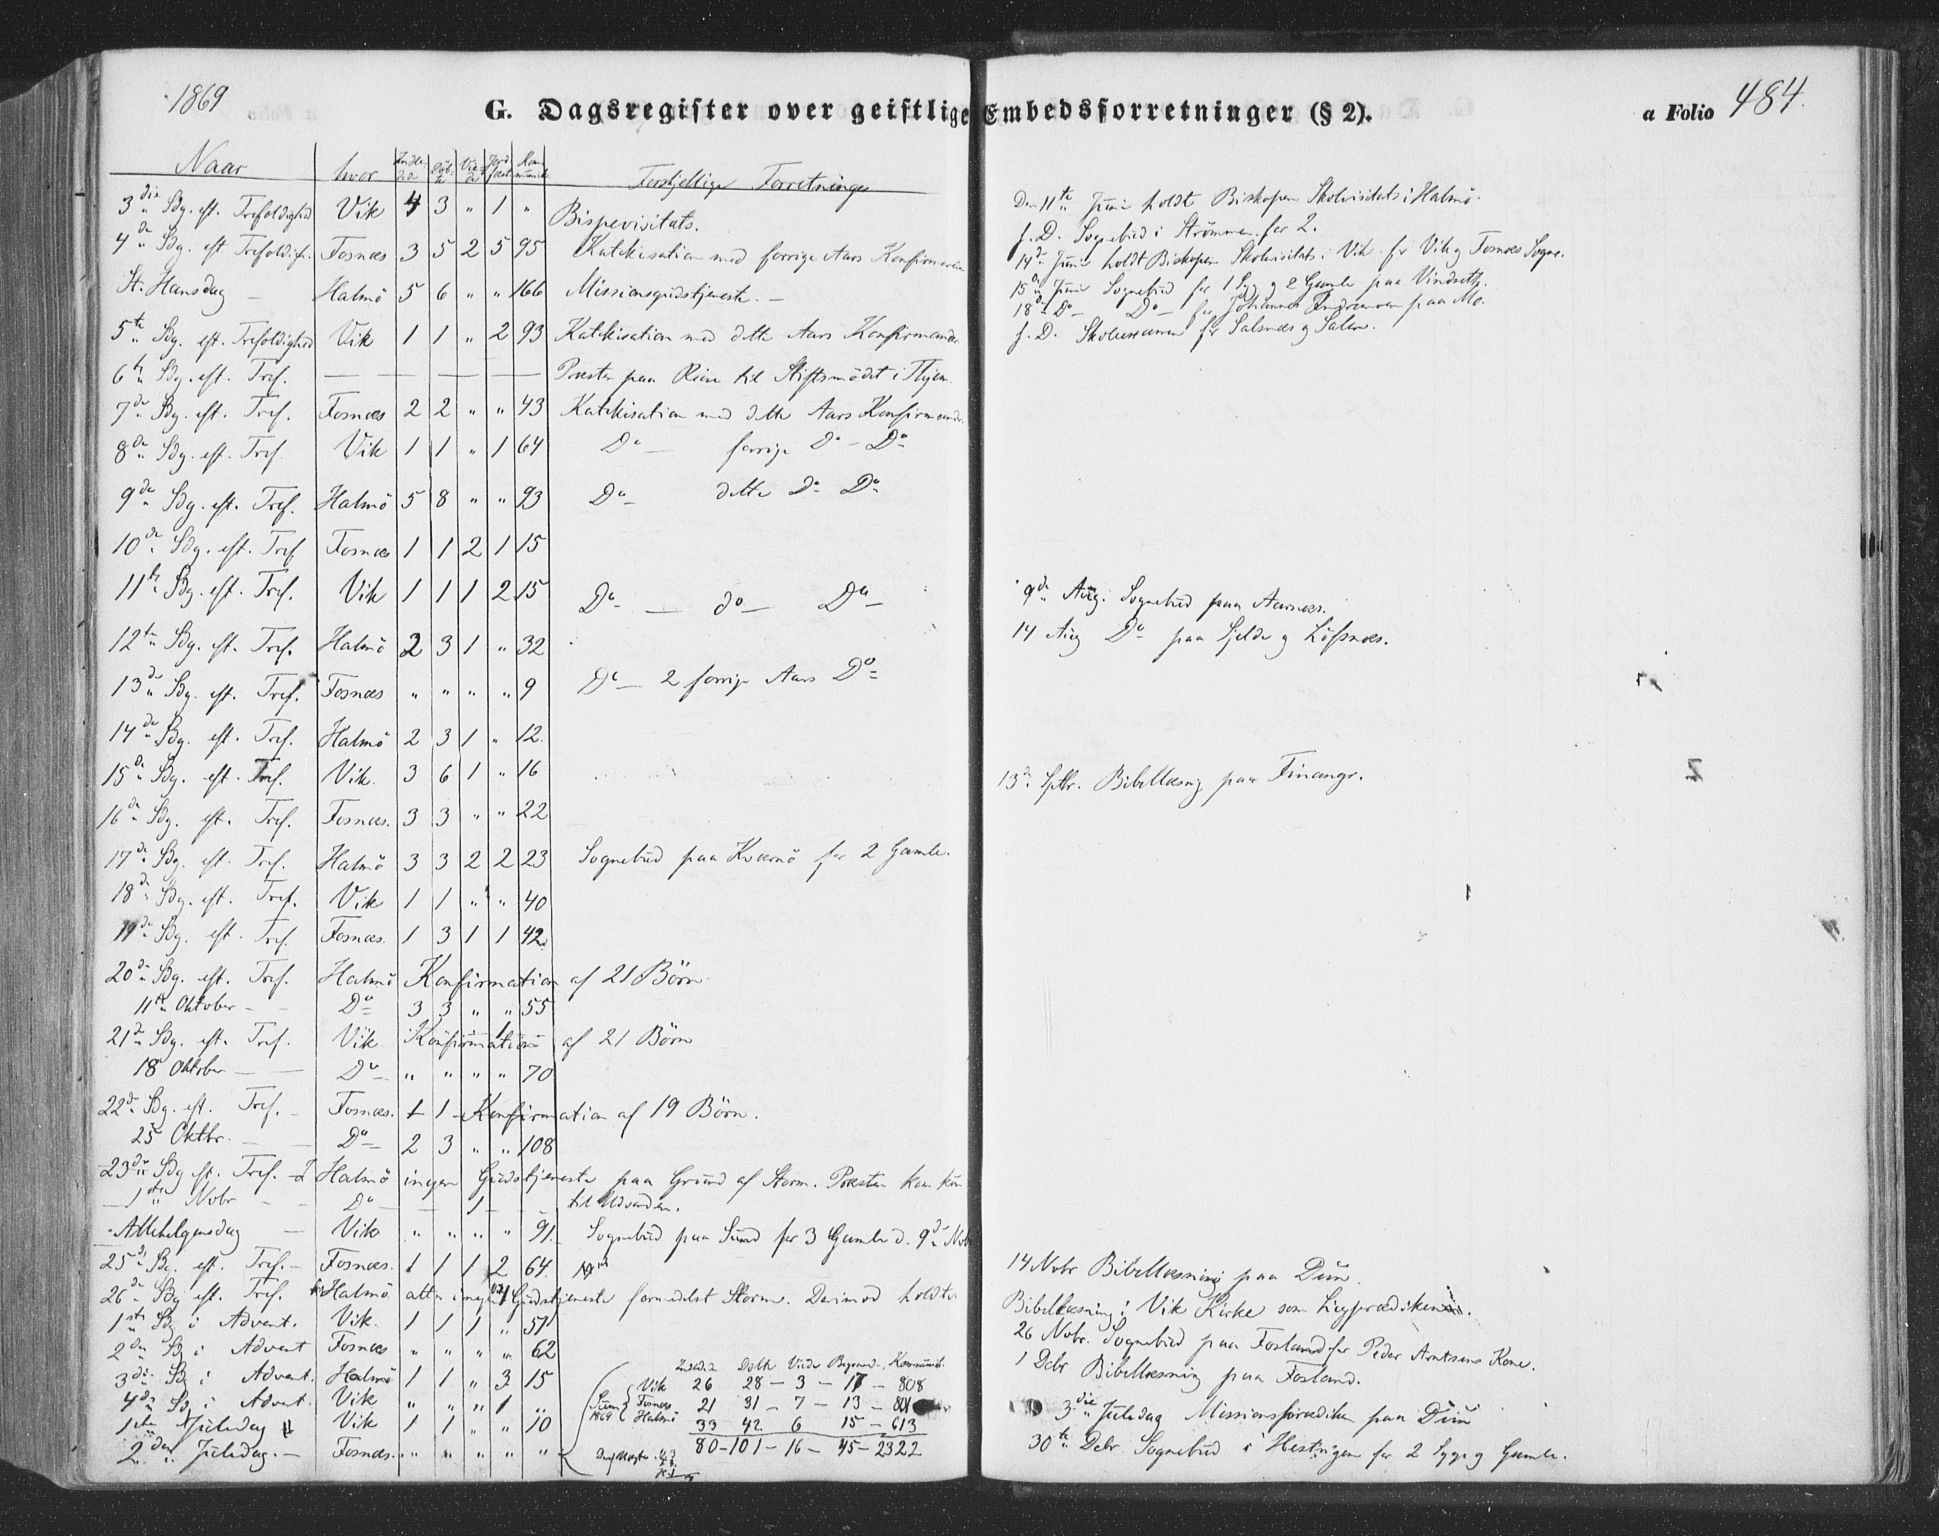 1869
G. Dagsregister over geistlige Embedsforretninger (§ 2).
a Folio 484.
Naar hvor Indledede Döbte Viede Jordfæst. Kommunik. Forskjellige Forretninger
3die Sdg. eft. Trefoldighed Vik 4 3 " 1 " Bispevisitats.
4de Sdg. eft Trefoldigh. Fosnæs 3 5 2 5 95 Katekisation med forrige Aars Konfirmerede
St. Hansdag — Halmö 5 6 " " 166 Missionsgudstjeneste. —
5te Sdg. eft. Trefoldighed Vik 1 1 " 2 93 Katekisation med dette Aars Konfirmander
6te Sdg. eft. Tref. — — — — — Presten paa Reise til Stiftsmödet i Thjem.
7de Sdg. eft. Tref. Fosnæs 2 2 " " 43 Katekisation med dette Aars Konfirmander
8de Sdg. eft. Tref. Vik 1 1 " 1 64 Do — forrige Do — Do
9de Sdg. eft. Tref. Halmö 5 8 " " 93 Do — dette Do Do
10de Sdg. eft. Tref Fosnæs 1 1 2 1 15
11te Sdg. eft. Tref. Vik 1 1 1 2 15 Do — do — Do —
12te Sdg. eft. Tref. Halmö 2 3 1 " 32
13de Sdg. eft. Tref. Fosnæs " " " " 9 Do — 2 forrige Aars Do
14de Sdg. eft. Tref. Halmö 2 3 1 " 12.
15de Sdg. eft. Tref. Vik. 3 6 1 " 16
16de Sdg. eft. Tref. Fosnæs. 3 3 " " 22
17de Sdg. eft. Tref. Halmö 3 3 2 2 23 Sognebud paa Kværnö for 2 Gamle.
18de Sdg. eft. Tref. Vik 1 1 " " 40
19de Sdg. eft. Tref. Fosnæs. 1 3 1 1 42.
20de Sdg. eft. Tref. Halmö Konfirmation af 21 Börn
11te Oktober — — Do 3 3 " " 55
21de Sdg. eft. Tref. Vik Konfirmation af 21 Börn
18 Oktober — — Do — " " " " 70
22de Sdg. eft. Tref. — Fosnæs. 1 1 — Konfirmation af 19 Börn.
25 Oktbr. — — Do — 2 3 " " 108
23de Sdg eft. Tref. — Halmö ingen Gudstjeneste paa Grund af Storm. Presten kom kun
1ste Novbr — — Do — — 1 — — til Udvorden.
Allehelgensdag — Vik " " " " 91. Sognebud paa Sund for 3 Gamle d. 9de Nov
25de Sdg. eft. Tref. — Fosnæs. 1 1 1 2 64.
26de Sdg eft. Tref. Halmö atter ingen Gudstjeneste formedelst Storm. Derimod holdtes
1ste Sdg i Advent. Vik. 1 1 1 " 57
2den Sdg i Advent Fosnæs " " " " 62
3die Sdg i Advent. Halmö 1 1 " 3 15
4de Sdg i Advent. Vik " " " 1 "
1ste Juledag Vik 1 1 " " 10
2den Juledag. — Fosnæs. " " " " "
Indl. Döbte Viede Begravd. Kommunik.
Sum 1869
Vik 26 28 — 3 — 17 — 808
Fosnæs 21 31 — 7 — 13 — 801
Halmö 33 42 6 15 — 613
80 — 101 — 16 — 45 — 2322
Den 11te Juni holdt Biskopen Skolevisitats i Halmö.
s. D. Sognebud i Strömmen for 2.
14de Juni holdt Biskopen Skolevisitats i Vik for Vik og Fosnæs Sogne.
15de Juni Sognebud for 1 Syg og 2 Gamle paa Vindseth.
18de Do — Do — for Johannes Andreassen paa Mo.
s. D. Skoleexamen for Salsnæs og Salen.
9de Aug. Sognebud paa Aarnes.
14 Aug Do paa Fjelde og Löfsnæs.
13de Septbr. Bibellæsning paa Finangr.
14 Novbr Bibellæsning paa Duun.
Bibellæsning i Vik Kirke som Lægprædiken.
26 Novbr. Sognebud paa Fosland for Peder Arntsens Kone.
1 Debr Bibellæsning paa Fosland.
3die Juledag Missionsprædiken paa Duun
30te Debr. Sognebud i Hestvigen for 2 Syge og Gamle.